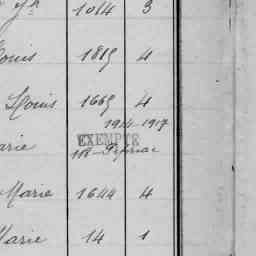 1014 3
Louis 1815 4
Louis 1669 4
1914-1917
EXEMPTE
Marie 1644 4
Marie 14 1